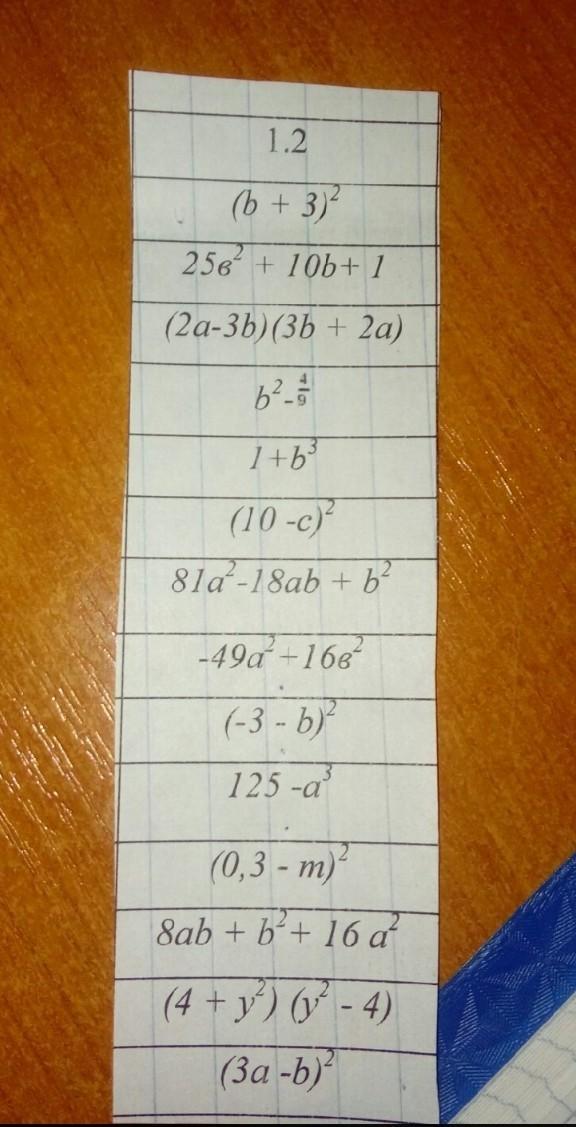 1.2
(b + 3)²
25в² + 10b+ 1
(2a-3b)(3b + 2a)
b²-4/9
1+b³
(10 -c)²
81a²-18ab + b²
-49a²+16в²
(-3 - b)²
125 -a³
(0,3 - m)²
8ab + b²+ 16 a²
(4 + y²) (y² - 4)
(3a -b)²